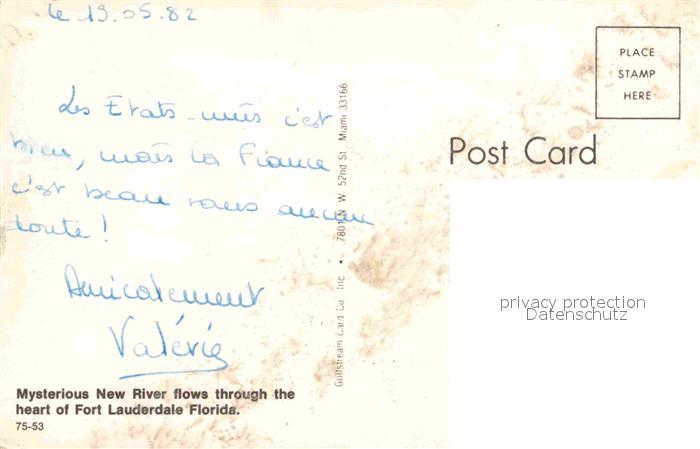 le 19.05.82
Les Etats-unis c'est
bien, mais la France
c'est beau sans aucun
doute !
Amicalement
Valérie
Mysterious New River flows through the
heart of Fort Lauderdale Florida.
75-53
Gulfstream Card Co. Inc. • 7801 N W 52nd St. Miami 33166
PLACE
STAMP
HERE
Post Card
privacy protection
Datenschutz